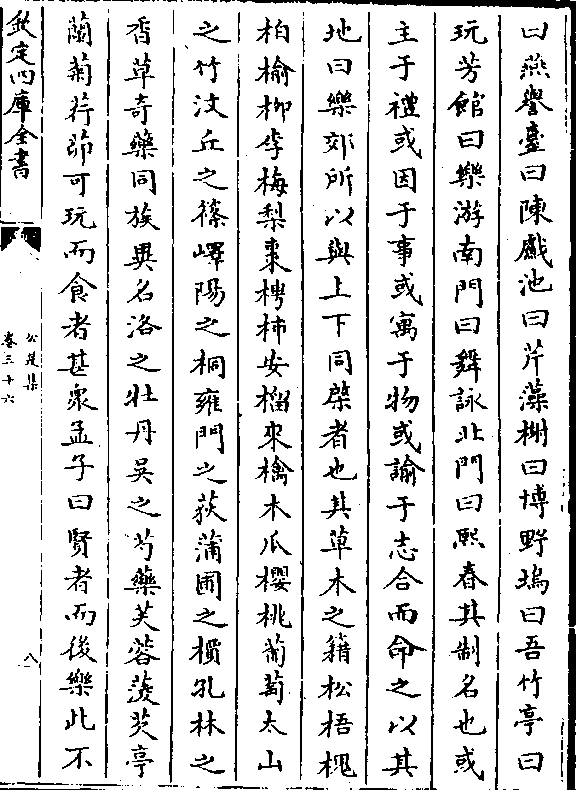 曰燕譽臺曰陳戲池曰芹藻榭曰博野塢曰吾竹亭曰
玩芳館曰樂游南門曰舞詠北門曰熙春其制名也或
主于禮或因于事或寓于物或諭于志合而命之以其
地曰樂郊所以與上下同棨者也其草木之籍松梧槐
柏榆柳李梅梨棗梬柿安榴來檎木瓜櫻桃葡萄太山
之竹汶丘之篠嶧陽之桐雍門之荻蒲圃之檟孔林之
香草奇藥同族異名洛之牡丹吳之芍藥芙蓉菱芡亭
蘭菊荇茆可玩而食者甚衆孟子曰賢者而後樂此不
欽定四庫全書
公是集
卷三十六
八